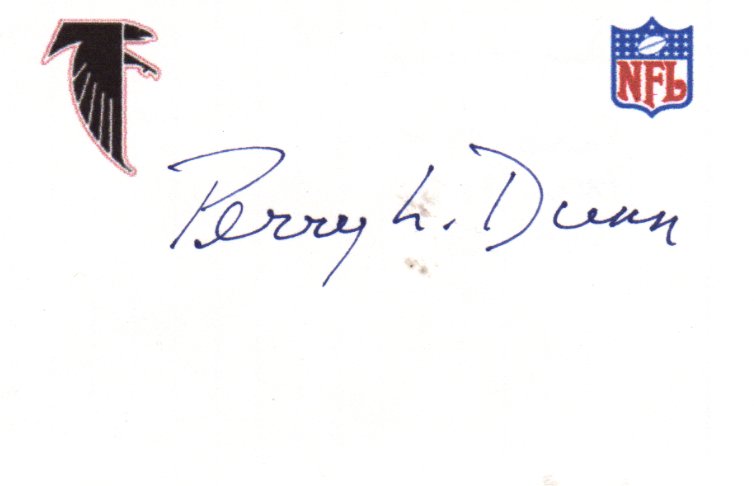 NFL
Perry L. Dunn